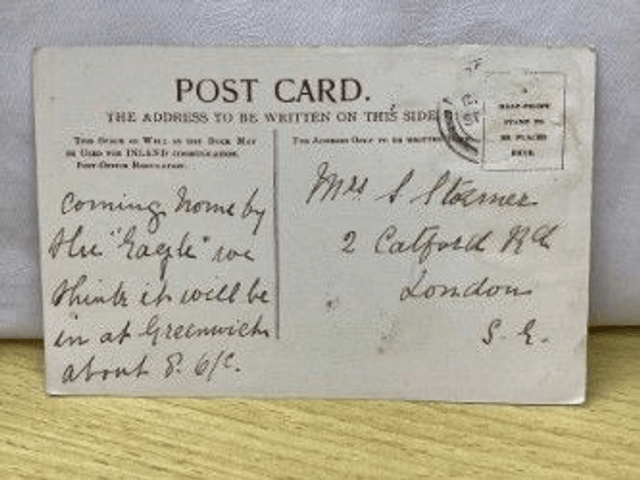 POST CARD.
THE ADDRESS TO BE WRITTEN ON THIS SIDE
THIS SPACE AS WELL AS THE BACK MAY
BE USED FOR INLAND COMMUNICATION.
POST-OFFICE REGULATION.
THE ADDRESS ONLY TO BE WRITTEN
HALF-PENNY
STAMP TO
BE PLACED
HERE
Coming home by
the "Eagle" we
think it will be
in at Greenwich
about 8.
Mrs S
2 Catford Rd
London
S. E.